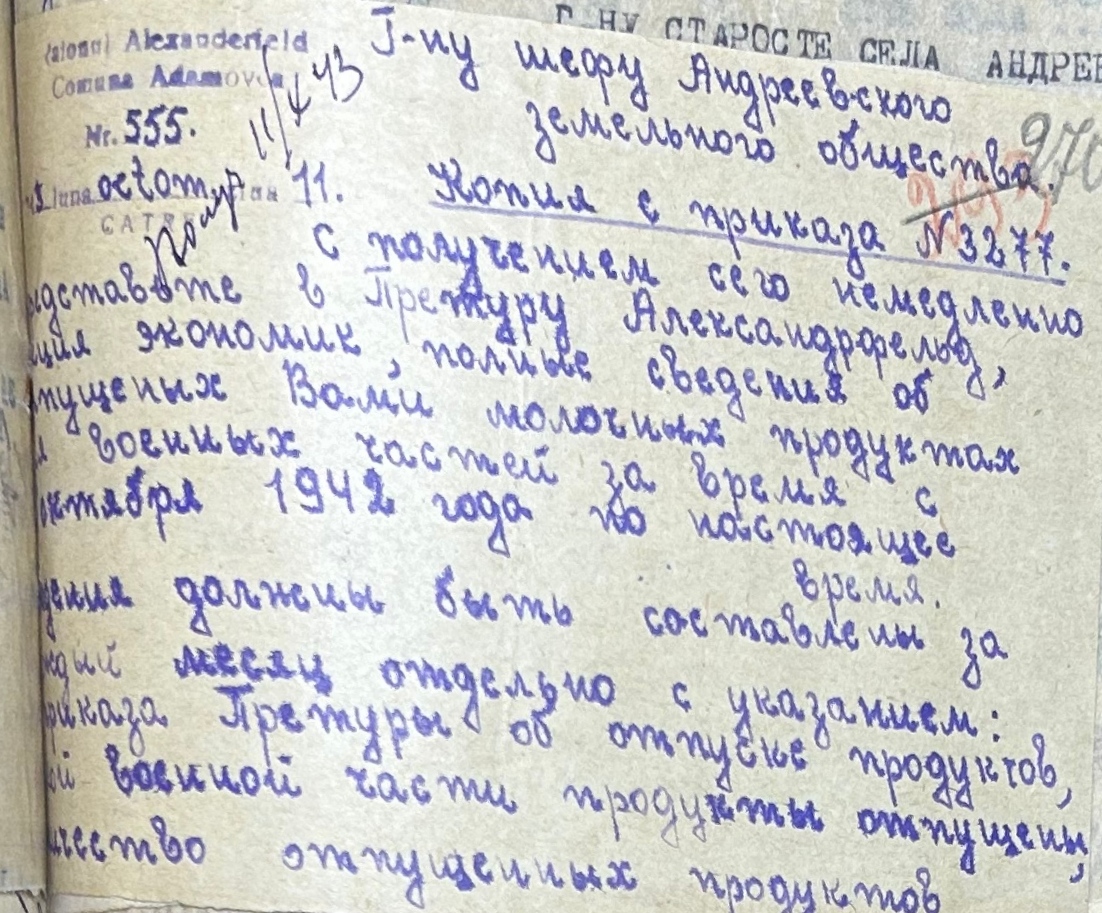 Г-НУ СТАРОСТЕ СЕЛА АНДРЕЕ
Raionul Alexanderfeld
Comuna Adamovca
Nr. 555.
11/4 43
luna octom 11.
CATRE
Г-ну шефу Андреевского
земельного общества.
270
Копия с приказа N3277.
С получением сего немедленно
едставьте в Претуру Александрфельд,
ция экономик, полные сведения об
пущеных Вами молочных продуктах
я военных частей за время с
октября 1942 года по настоящее
время.
дения должены быть составлены за
ждый месяц отдельно с указанием:
риказа Претуры об отпуске продуктов,
ой военной части продукты отпущены,
ичество отпущенных продуктов